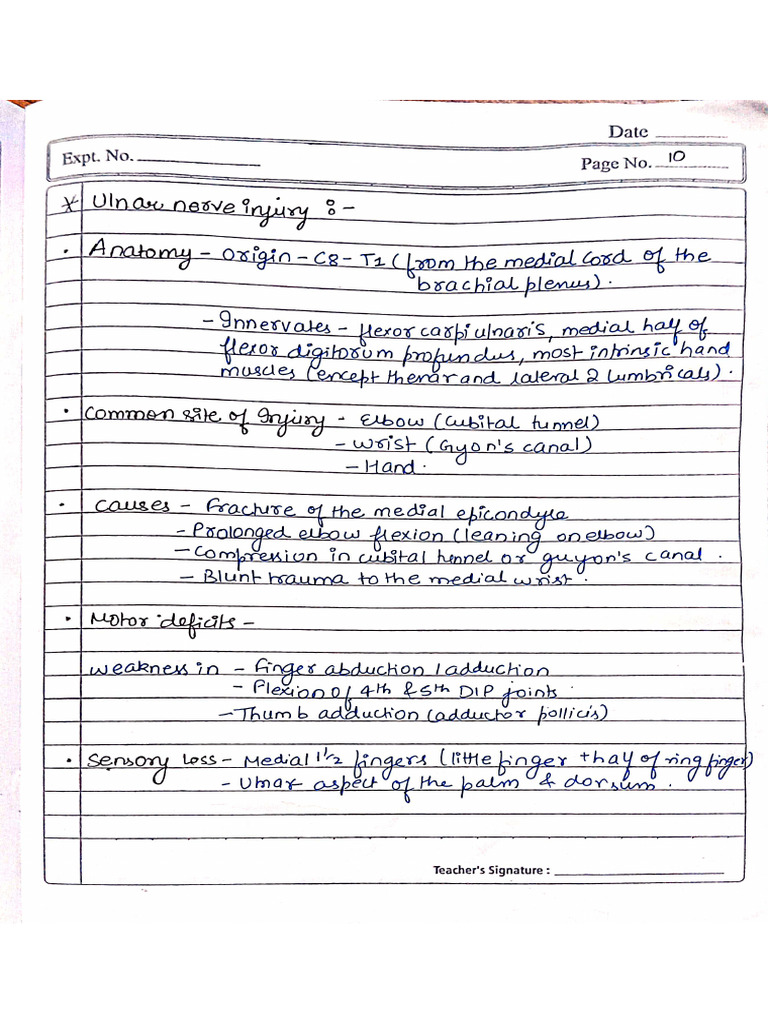 Date
Expt. No.
Page No. 10
* Ulnar nerve injury :-
• Anatomy - Origin - C8 - T1 (from the medial cord of the
brachial plexus).
- Innervates - flexor carpi ulnaris, medial half of
flexor digitorum profundus, most intrinsic hand
muscles (except thenar and lateral 2 lumbricals).
• Common site of Injury - Elbow (Cubital tunnel)
- Wrist (Gyon's canal)
- Hand.
• Causes - Fracture of the medial epicondyle
- Prolonged elbow flexion (leaning on elbow)
- Compression in cubital tunnel or guyon's canal.
- Blunt trauma to the medial wrist.
• Motor deficits -
Weakness in - Finger abduction / adduction
- Flexion of 4th & 5th DIP joints.
- Thumb adduction (adductor pollicis)
• Sensory Loss - Medial 1½ fingers (little finger + half of ring finger)
- Ulnar aspect of the palm & dorsum.
Teacher's Signature :